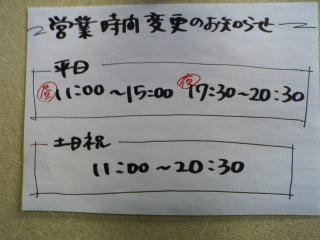 営業時間変更のお知らせ
平日
昼 11:00～15:00 夜 17:30～20:30
土日祝
11:00～20:30